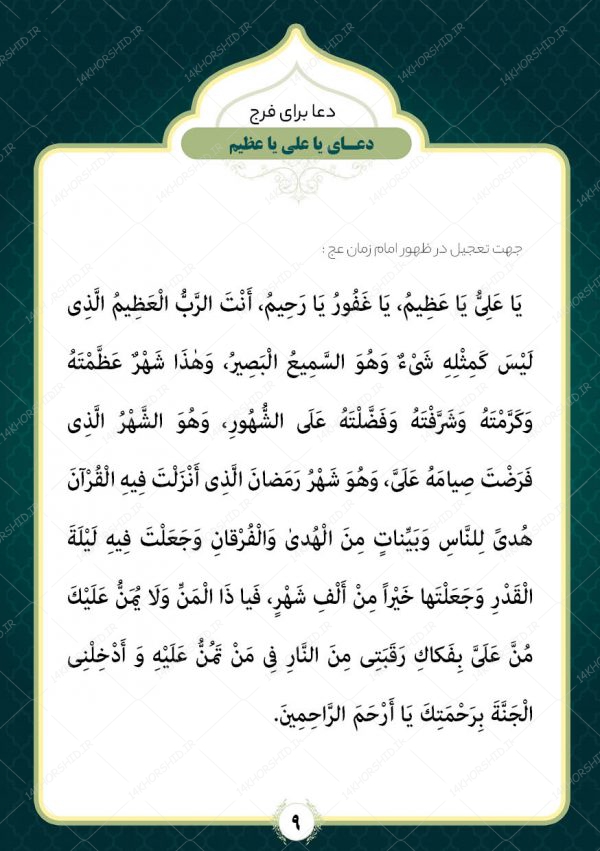 دعا برای فرج
دعــای یا علی یا عظیم
جهت تعجیل در ظهور امام زمان عج :
يَا عَلِىُّ يَا عَظِيمُ، يَا غَفُورُ يَا رَحِيمُ، أَنْتَ الرَّبُّ الْعَظِيمُ الَّذِى
لَيْسَ كَمِثْلِهِ شَىْءٌ وَهُوَ السَّمِيعُ الْبَصِيرُ، وَهٰذَا شَهْرٌ عَظَّمْتَهُ
وَكَرَّمْتَهُ وَشَرَّفْتَهُ وَفَضَّلْتَهُ عَلَى الشُّهُورِ، وَهُوَ الشَّهْرُ الَّذِى
فَرَضْتَ صِيامَهُ عَلَىَّ، وَهُوَ شَهْرُ رَمَضانَ الَّذِى أَنْزَلْتَ فِيهِ الْقُرْآنَ
هُدىً لِلنَّاسِ وَبَيِّناتٍ مِنَ الْهُدىٰ وَالْفُرْقانِ وَجَعَلْتَ فِيهِ لَيْلَةَ
الْقَدْرِ وَجَعَلْتَها خَيْراً مِنْ أَلْفِ شَهْرٍ، فَيا ذَا الْمَنِّ وَلَا يُمَنُّ عَلَيْكَ
مُنَّ عَلَىَّ بِفَكاكِ رَقَبَتِى مِنَ النَّارِ فِى مَنْ تَمُنُّ عَلَيْهِ وَ أَدْخِلْنِى
الْجَنَّةَ بِرَحْمَتِكَ يَا أَرْحَمَ الرَّاحِمِينَ.
۹
14KHORSHID.IR